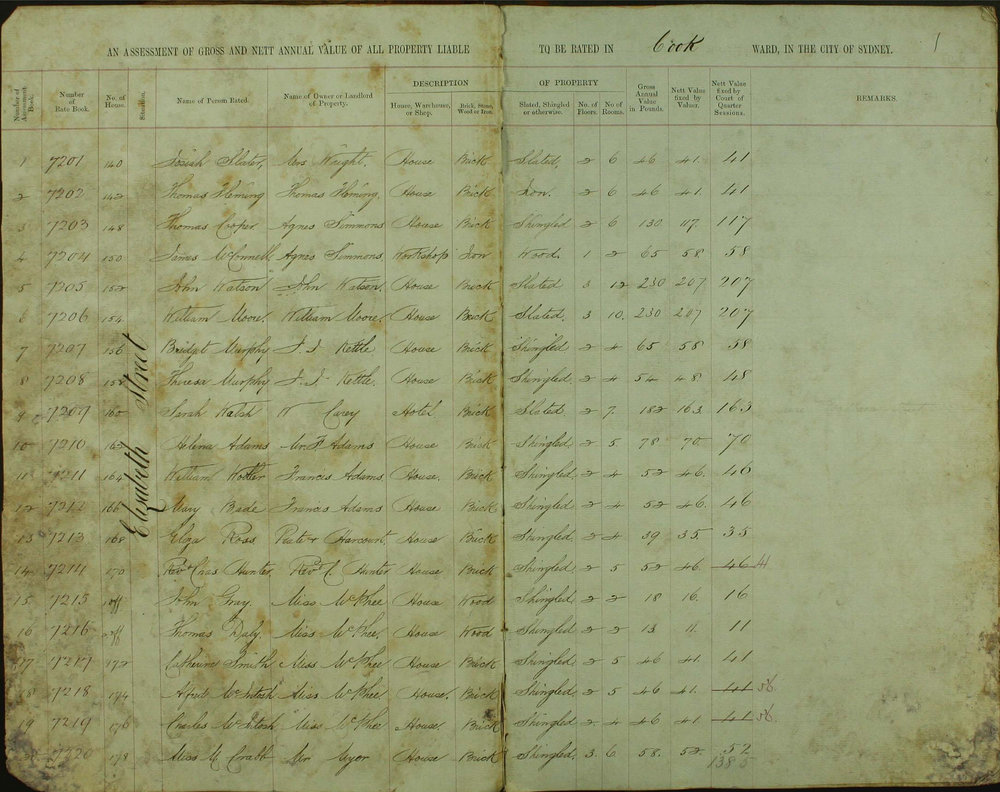 AN ASSESSMENT OF GROSS AND NETT ANNUAL VALUE OF ALL PROPERTY LIABLE TO BE RATED IN Cook WARD, IN THE CITY OF SYDNEY. 1
DESCRIPTION OF PROPERTY
Number of Assessment Book. Number of Rate Book. No. of House. Situation. Name of Person Rated. Name of Owner or Landlord of Property. House, Warehouse, or Shop. Brick, Stone, Wood or Iron. Slated, Shingled or otherwise. No. of Floors. No of Rooms. Gross Annual Value in Pounds. Nett Value fixed by Valuer. Nett Value fixed by Court of Quarter Sessions. REMARKS.
Elizabeth Street
1 7201 140 Josiah Slater, Mrs Wright. House Brick Slated, 2 6 46 41. 41
2 7202 142 Thomas Fleming Thomas Fleming. House Brick Iron. 2 6 46 41. 41
3 7203 148 Thomas Cooper Agnes Simmons House Brick Shingled 2 6 130 117. 117
4 7204 150 James McConnell Agnes Simmons Workshop Iron Wood. 1 2 65 58 58
5 7205 152 John Watson John Watson. House Brick Slated 3 12 230 207 207
6 7206 154 William Moore. William Moore. House Brick Slated. 3 10. 230 207 207
7 7207 156 Bridget Murphy J. J. Kettle House Brick Shingled 2 4 65 58 58
8 7208 158 Theresa Murphy J. J. Kettle. House Brick Shingled. 2 4 54 48. 48
9 7209 160 Sarah Walsh W Carey Hotel. Brick Slated 2 7. 182 163. 163
10 7210 162 Helena Adams Mr. Adams House Brick Shingled. 2 5 78 70. 70
11 7211 164 William Francis Adams House. Brick Shingled 2 4 52 46. 46
12 7212 166 Mary Bade Francis Adams House Brick Shingled 2 4 52 46. 46
13 7213 168 Eliza Ross Peter Harcourt House Brick Shingled. 2 4 39 35. 35
14 7214 170 Revd Chas Hunter. Revd C. Hunter House Brick Shingled 2 5 52 46. 46
15 7215 off John Gray. Miss McPhee House Wood Shingled. 2 2 18 16. 16
16 7216 off Thomas Daly. Miss McPhee. House Wood Shingled. 2 2 13. 11. 11
17 7217 172 Catherine Smith Miss McPhee House Brick Shingled 2 5 46 41. 41
18 7218 174 Alfred McIntosh Miss McPhee House. Brick Shingled 2 5 46 41. 41 56
19 7219 176 Charles McIntosh Miss McPhee House. Brick Shingled 2. 4 46 41 41 56.
7220 178 Miss M Crabb Mr Myor House Brick Shingled. 3. 6. 58. 52 52
1385